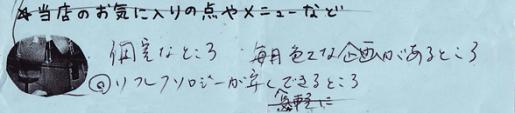 ☆当店のお気に入りの点やメニューなど
個室なところ 毎月色々な企画があるところ
◎リフレクソロジーが安くできるところ
気軽に